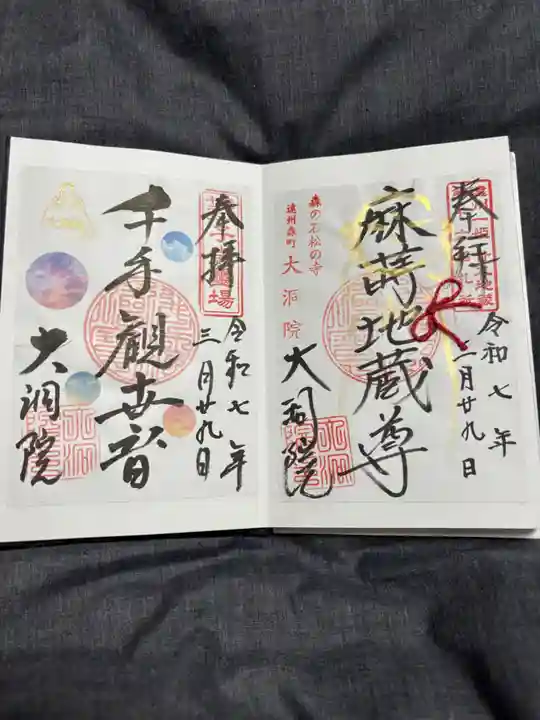 奉拝
令和七年
三月廿九日
麻蒔地蔵尊
大洞院
森の石松の寺
遠州森町 大洞院
奉拝
令和七年
三月廿九日
千手観世音
大洞院